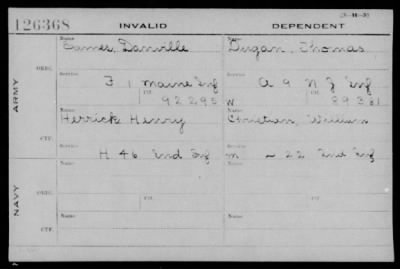 126368 INVALID DEPENDENT
Name Name
Eames, Danville Dugan, Thomas
ORIG.
Service Service
F 1 Maine Inf A 9 N J Inf
Ctf. Ctf.
92295 W. 89381
ARMY
Name Name
Herrick Henry Christian, William
CTF.
Service Service
H 46 Ind Inf m - 22 Ind Inf
Name Name
Service Service
ORIG.
Ctf. Ctf.
NAVY
Name Name
CTF.